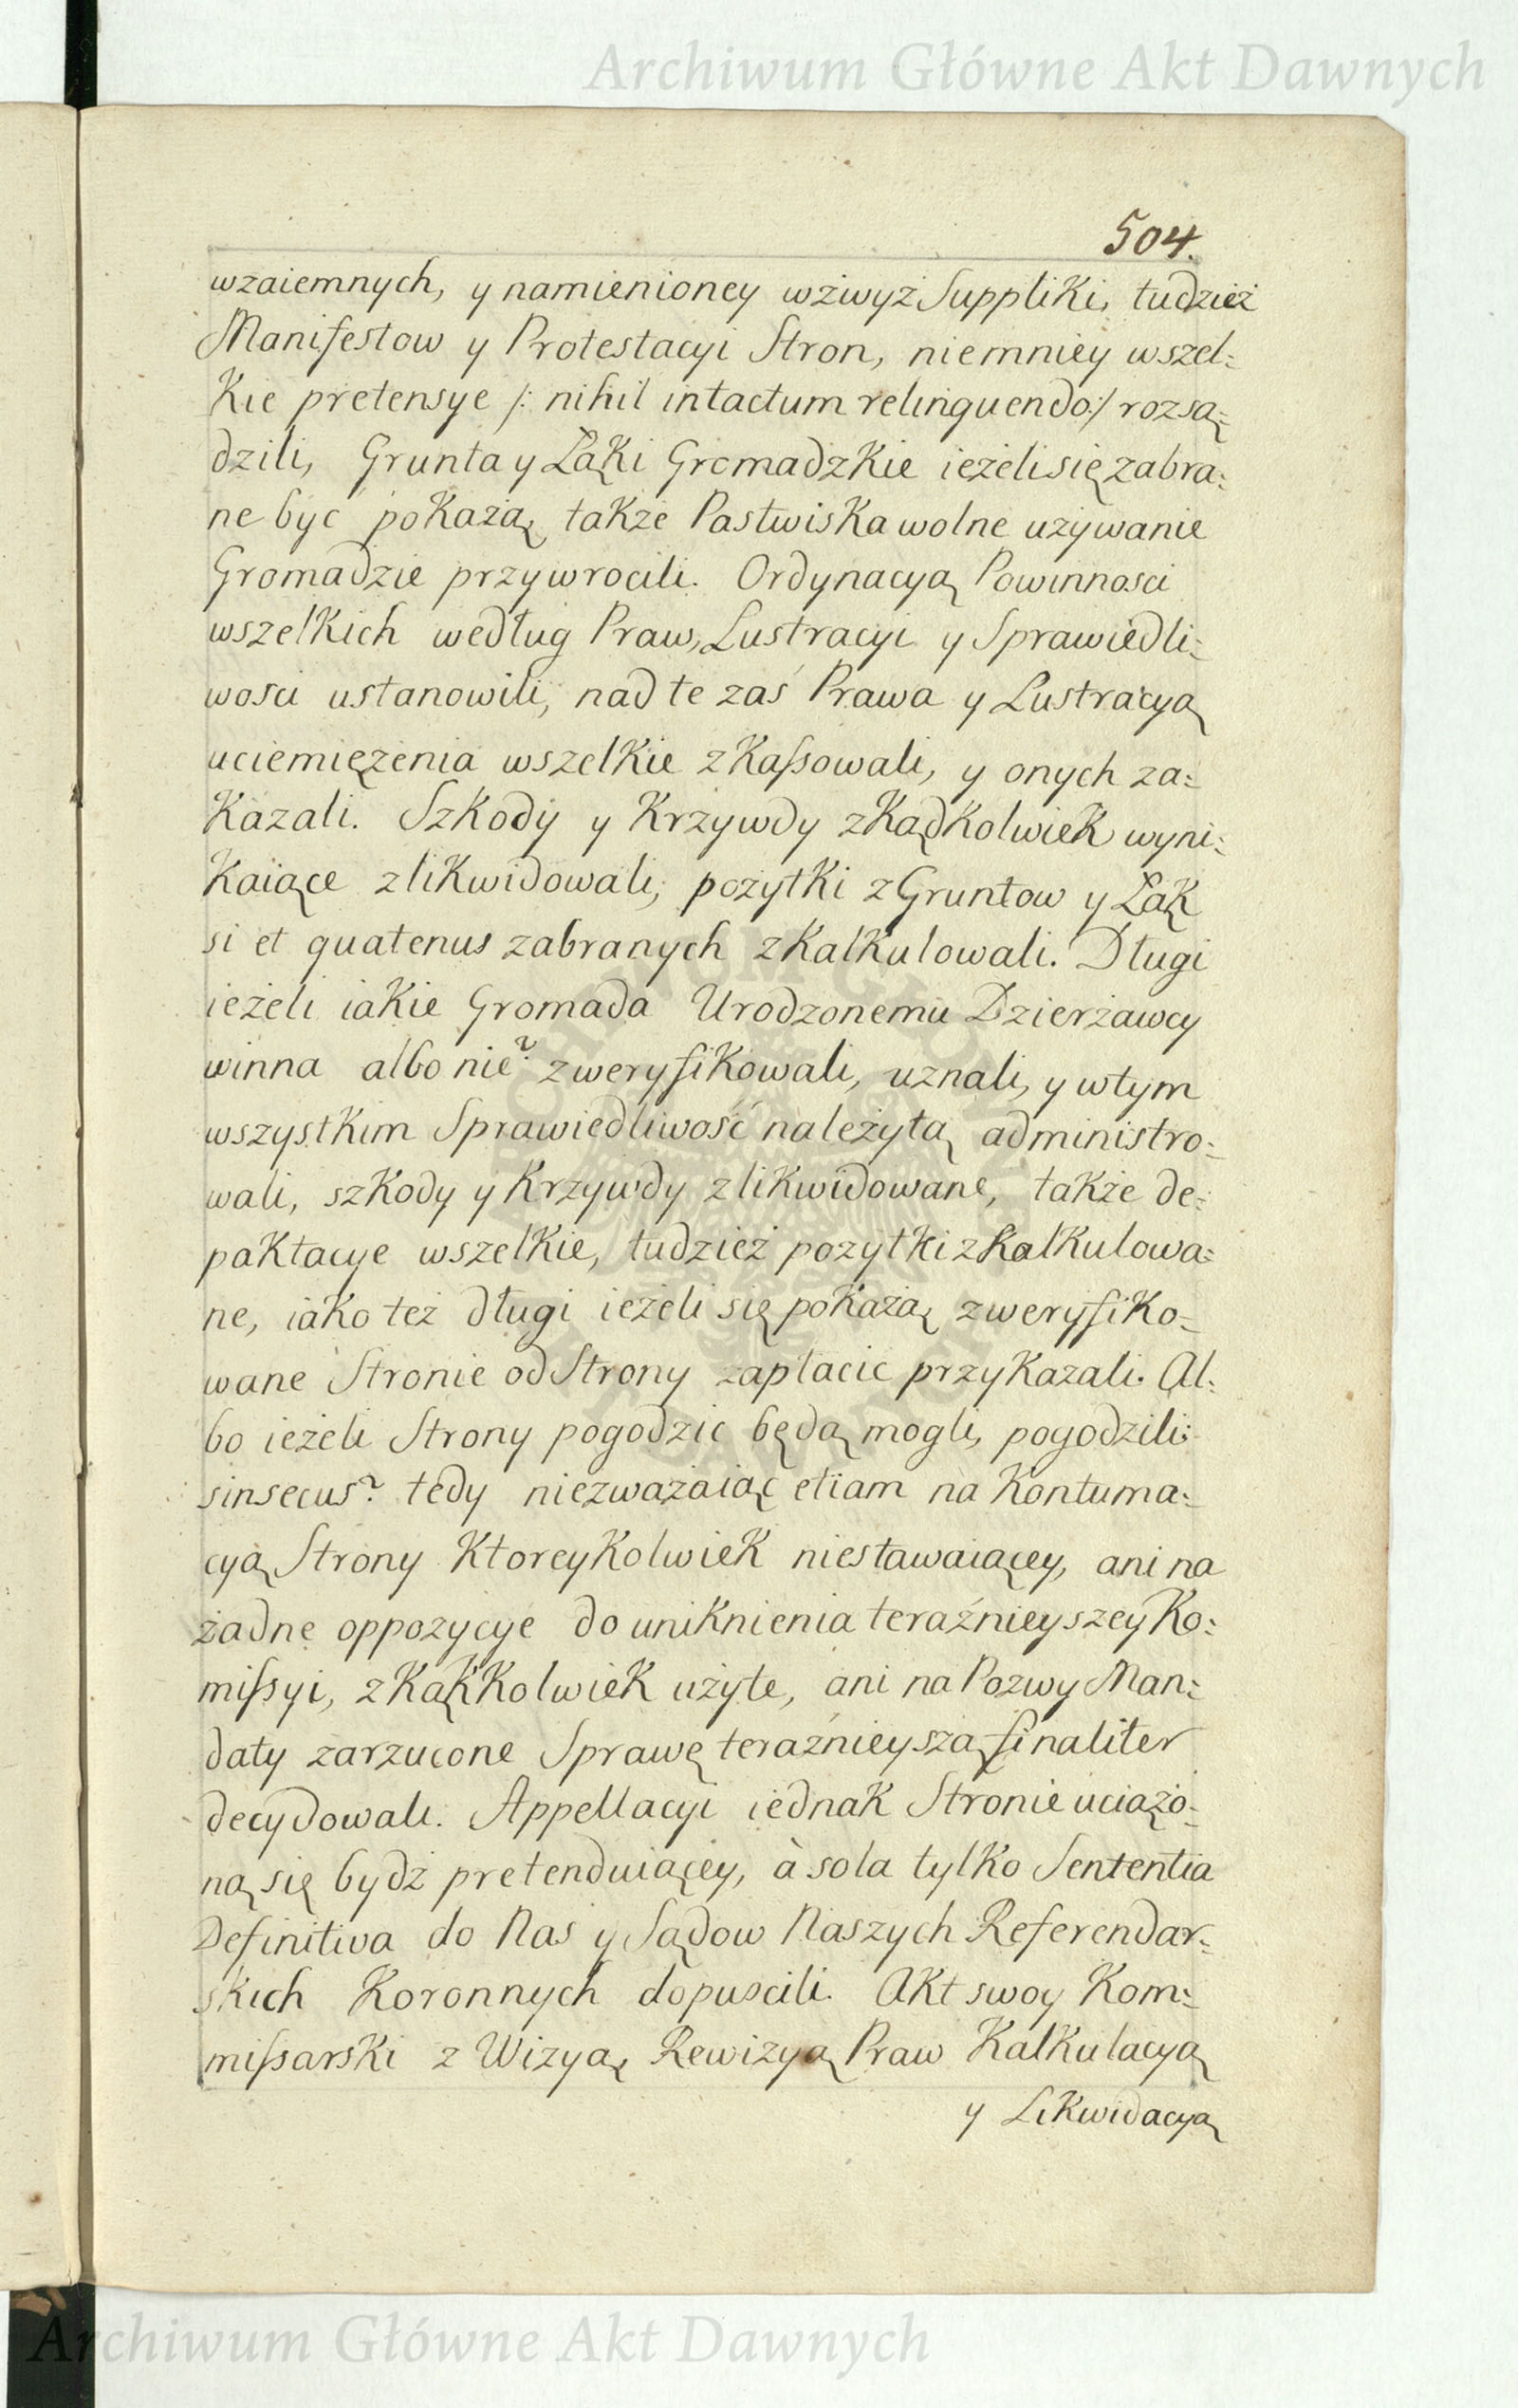 Archiwum Główne Akt Dawnych
504.
wzaiemnych, y namienioney wżwyż Suppliki, tudzież
Manifestow y Protestacyi Stron, niemniey wszel:
Kie pretensye /: nihil intactum relinquendo:/ rozsą:
dzili, Grunta y Łąki Gromadzkie ieżeli się zabra:
ne być pokażą, także Pastwiska wolne używanie
Gromadzie przywrocili. Ordynacyą Powinnosci
wszelkich według Praw, Lustracyi y Sprawiedli:
wosci ustanowili, nad te zaś Prawa y Lustracyą
uciemiężenia wszelkie zkassowali, y onych za:
Kazali. Szkody y Krzywdy zkądkolwiek wyni:
Kaiące zlikwidowali, pożytki z Gruntow y Łąk
si et quatenus zabranych zkalkulowali. Długi
ieżeli iakie Gromada Urodzonemu Dzierżawcy
winna albo nie? zweryfikowali, uznali, y wtym
wszystkim Sprawiedliwość należytą administro:
wali, szkody y Krzywdy zlikwidowane, także de:
paktacye wszelkie, tudzież pożytki zkalkulowa:
ne, iako też długi ieżeli się pokażą zweryfiko:
wane Stronie od Strony zapłacic przykazali. Al:
bo ieżeli Strony pogodzic będą mogli, pogodzili:
sinsecus? tedy niezważaiąc etiam na Kontuma:
cyą Strony Ktoreykolwiek niestawaiącey, ani na
żadne oppozycye do uniknienia teraźnieyszey Ko:
missyi, zkąkkolwiek użyte, ani na Pozwy Man:
daty zarzucone Sprawę teraźnieyszą finaliter
decydowali. Appellacyi iednak Stronie uciążo:
ną się bydź pretenduiącey, à sola tylko Sententia
Definitiva do Nas y Sądow Naszych Referendar:
skich Koronnych dopuscili. Akt swoy Kom:
missarski z Wizyą, Rewizyą Praw Kalkulacyą
y Likwidacyą
Archiwum Główne Akt Dawnych